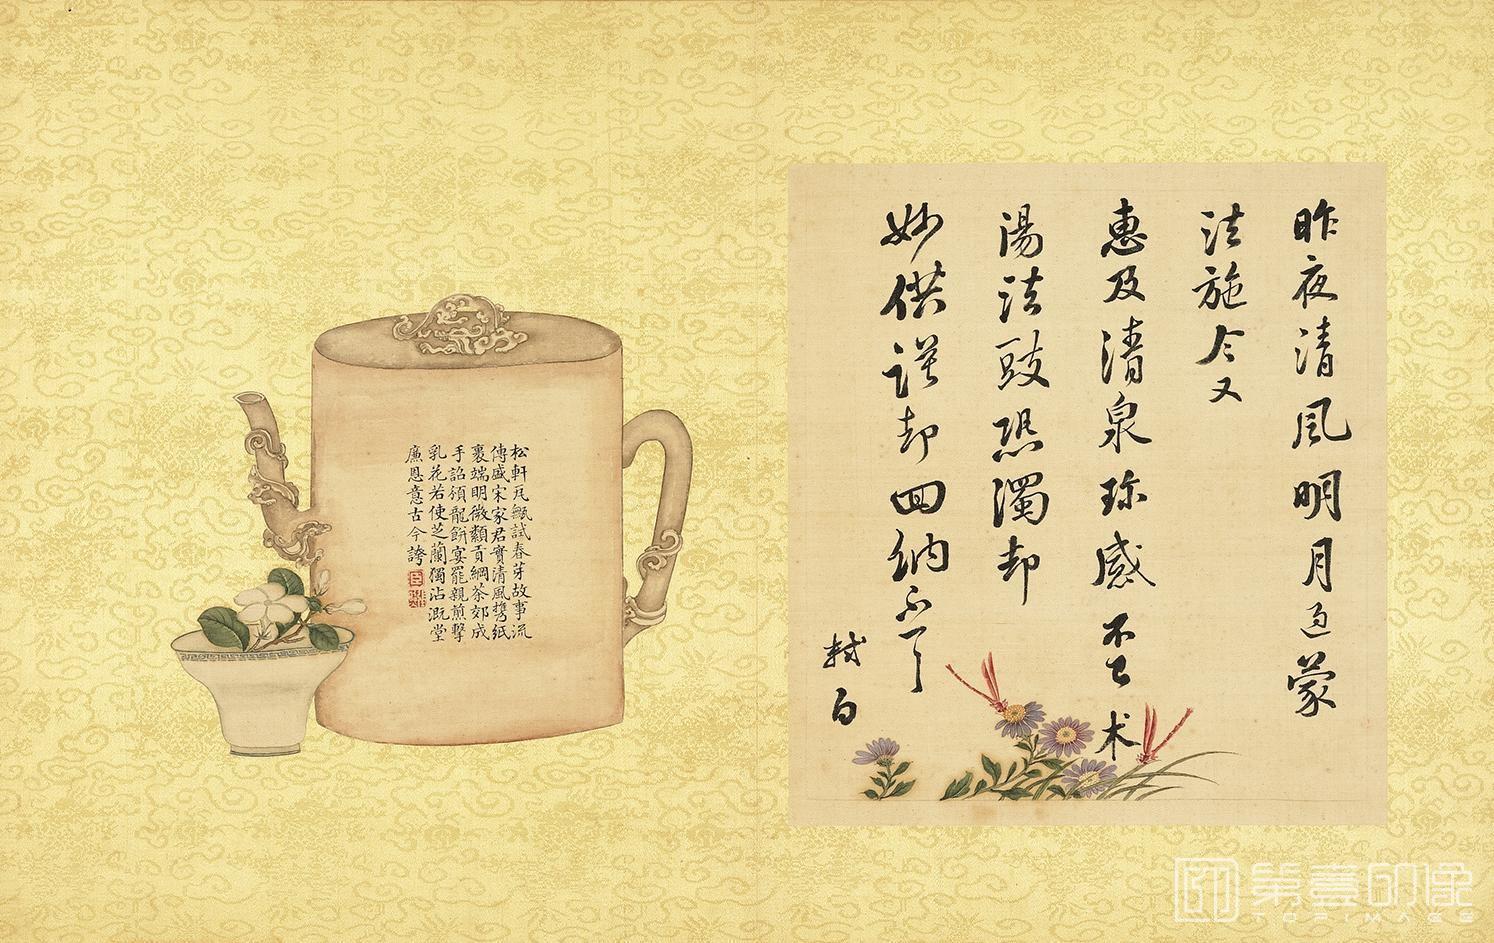 昨夜清風明月過蒙
法施今又
惠及清泉珍感不已术
湯法豉恐濁却
妙供謹却回納不一一
軾白
松軒瓦甌試春芽故事流
傳盛宋家君實清風携紙
裹端明微纇貢綱茶郊成
手詔頒龍餅宴罷親煎擊
乳花若使芝蘭獨沾溉堂
廉恩意古今誇
第壹印像
TOPIMAGE